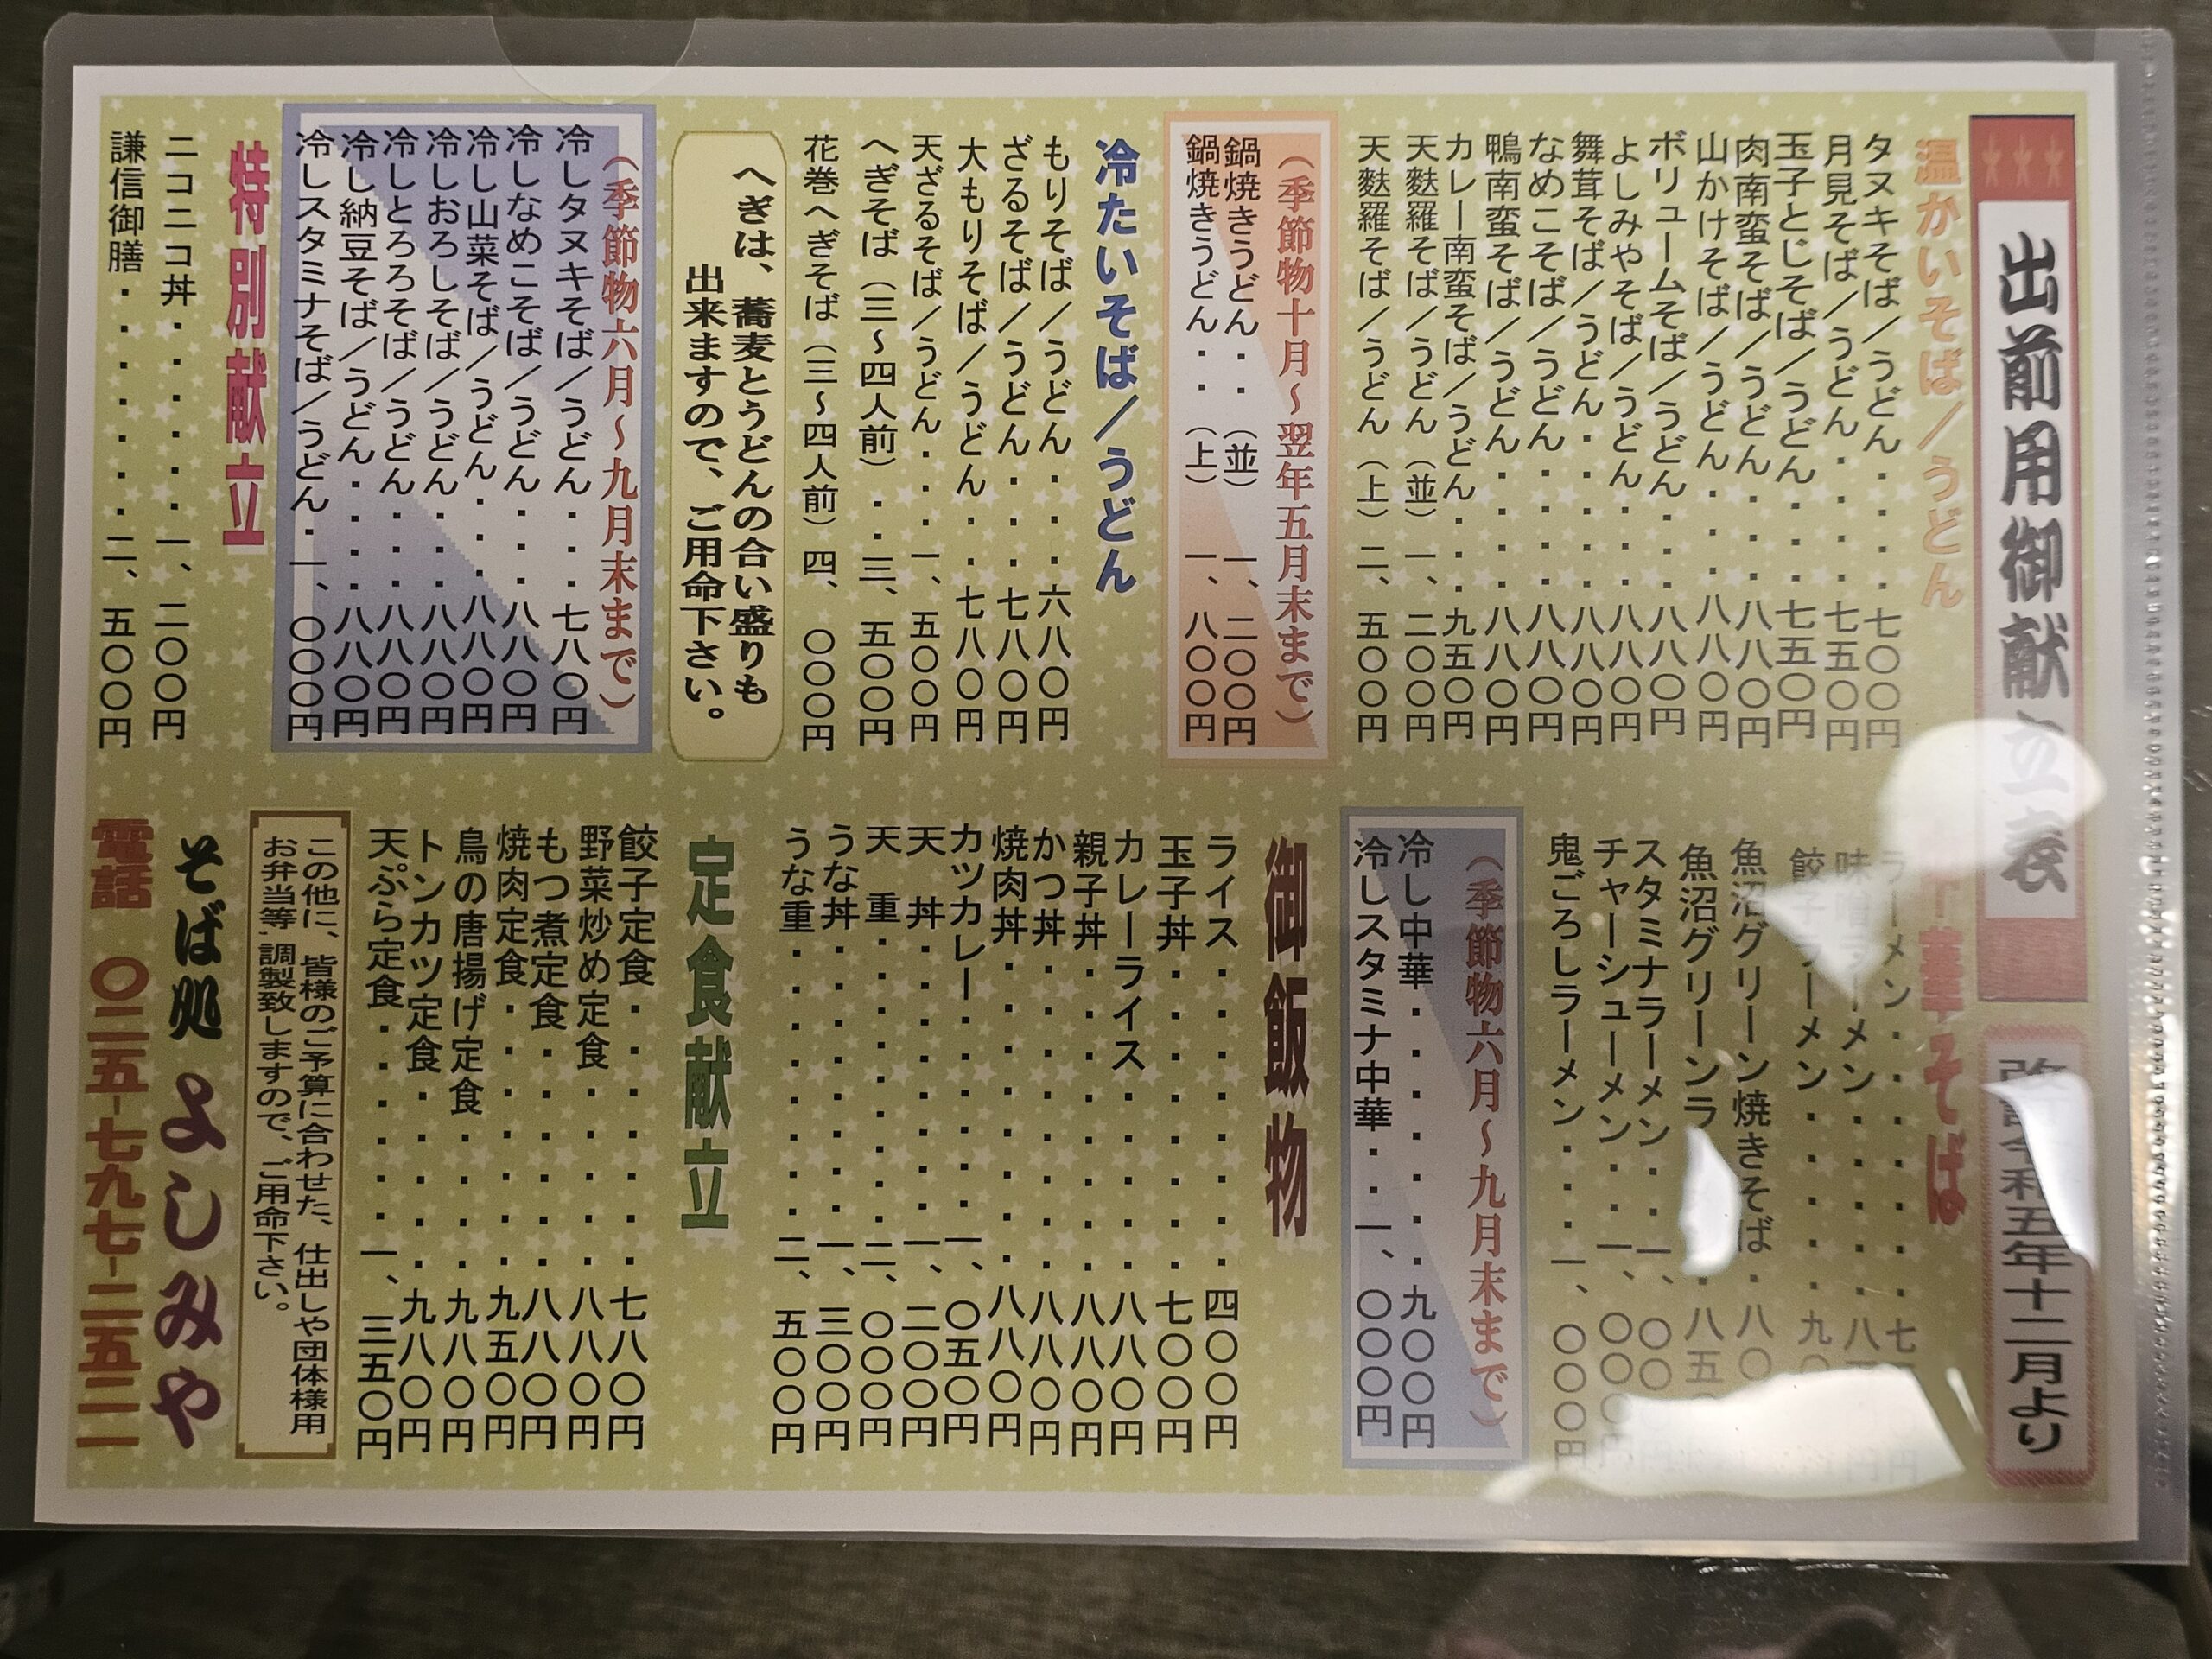 出前用御献立表
改訂令和五年十二月より
温かいそば／うどん
タヌキそば／うどん・・・・七〇〇円
月見そば／うどん・・・・七五〇円
玉子とじそば／うどん・・・七五〇円
肉南蛮そば／うどん・・・・八八〇円
山かけそば／うどん・・・・八八〇円
ボリュームそば／うどん・・・八八〇円
よしみやそば／うどん・・・八八〇円
舞茸そば／うどん・・・・・八八〇円
なめこそば／うどん・・・・八八〇円
鴨南蛮そば／うどん・・・・八八〇円
カレー南蛮そば／うどん・・・九五〇円
天麩羅そば／うどん（並）一、二〇〇円
天麩羅そば／うどん（上）二、五〇〇円
（季節物十月～翌年五月末まで）
鍋焼きうどん・・（並）一、二〇〇円
鍋焼きうどん・・（上）一、八〇〇円
冷たいそば／うどん
もりそば／うどん・・・六八〇円
ざるそば／うどん・・・七八〇円
大もりそば／うどん・・七八〇円
天ざるそば／うどん・・・一、五〇〇円
へぎそば（三～四人前）・・三、五〇〇円
花巻へぎそば（三～四人前）四、〇〇〇円
へぎは、蕎麦とうどんの合い盛りも
出来ますので、ご用命下さい。
（季節物六月～九月末まで）
冷しタヌキそば／うどん・・・七八〇円
冷しなめこそば／うどん・・・八八〇円
冷し山菜そば／うどん・・・八八〇円
冷しおろしそば／うどん・・・八八〇円
冷しとろろそば／うどん・・・八八〇円
冷し納豆そば／うどん・・・・八八〇円
冷しスタミナそば／うどん・一、〇〇〇円
特別献立
ニコニコ丼・・・・・・一、二〇〇円
謙信御膳・・・・・・・二、五〇〇円
そば
ラーメン・・・・・・七
ーメン・・・・・八
餃子ラーメン・・・・・九
魚沼グリーン焼きそば・八〇
魚沼グリーンラ・八五
スタミナラーメン・・一、〇〇
チャーシューメン・・一、〇〇〇円
鬼ごろしラーメン・・・一、〇〇〇円
（季節物六月～九月末まで）
冷し中華・・・・・・九〇〇円
冷しスタミナ中華・・一、〇〇〇円
御飯物
ライス・・・・・・・・四〇〇円
玉子丼・・・・・・・・七〇〇円
カレーライス・・・・・八八〇円
親子丼・・・・・・・・八八〇円
かつ丼・・・・・・・・八八〇円
焼肉丼・・・・・・・・八八〇円
カツカレー・・・・・一、〇五〇円
天　丼・・・・・・・一、二〇〇円
天　重・・・・・・・二、〇〇〇円
うな丼・・・・・・・一、三〇〇円
うな重・・・・・・・二、五〇〇円
定食献立
餃子定食・・・・・・・七八〇円
野菜炒め定食・・・・・八八〇円
もつ煮定食・・・・・・八八〇円
焼肉定食・・・・・・・九五〇円
鳥の唐揚げ定食・・・・九八〇円
トンカツ定食・・・・・九八〇円
天ぷら定食・・・・・・一、三五〇円
この他に、皆様のご予算に合わせた、仕出しや団体様用
お弁当等、調製致しますので、ご用命下さい。
そば処 よしみや
電話 〇二五-七九七-二五二一